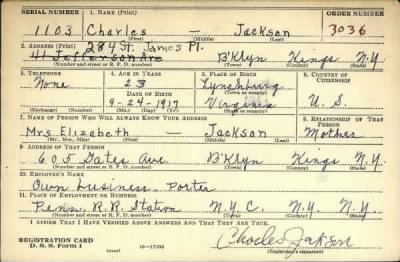 SERIAL NUMBER 1. NAME (Print) ORDER NUMBER
1103 Charles — Jackson 3036
(First) (Middle) (Last)
284 St. James Pl.
2. ADDRESS (Print)
41 Jefferson Ave B'klyn Kings N.Y.
(Number and street or R. F. D. number) (Town) (County) (State)
3. TELEPHONE 4. AGE IN YEARS 5. PLACE OF BIRTH 6. COUNTRY OF CITIZENSHIP
None 23 Lynchburg
DATE OF BIRTH (Town or county)
9-24-1917 Virginia U.S.
(Exchange) (Number) (Mo.) (Day) (Yr.) (State or country)
7. NAME OF PERSON WHO WILL ALWAYS KNOW YOUR ADDRESS 8. RELATIONSHIP OF THAT PERSON
Mrs Elizabeth — Jackson Mother
(Mr., Mrs., Miss) (First) (Middle) (Last)
9. ADDRESS OF THAT PERSON
605 Gates Ave B'klyn Kings N.Y.
(Number and street or R. F. D. number) (Town) (County) (State)
10. EMPLOYER'S NAME
Own business - Porter
11. PLACE OF EMPLOYMENT OR BUSINESS
Penn. R.R. Station N.Y.C. N.Y. N.Y.
(Number and street or R. F. D. number) (Town) (County) (State)
I AFFIRM THAT I HAVE VERIFIED ABOVE ANSWERS AND THAT THEY ARE TRUE.
REGISTRATION CARD
D. S. S. Form 1 (over) 16—17105 Charles Jackson
(Registrant's signature)